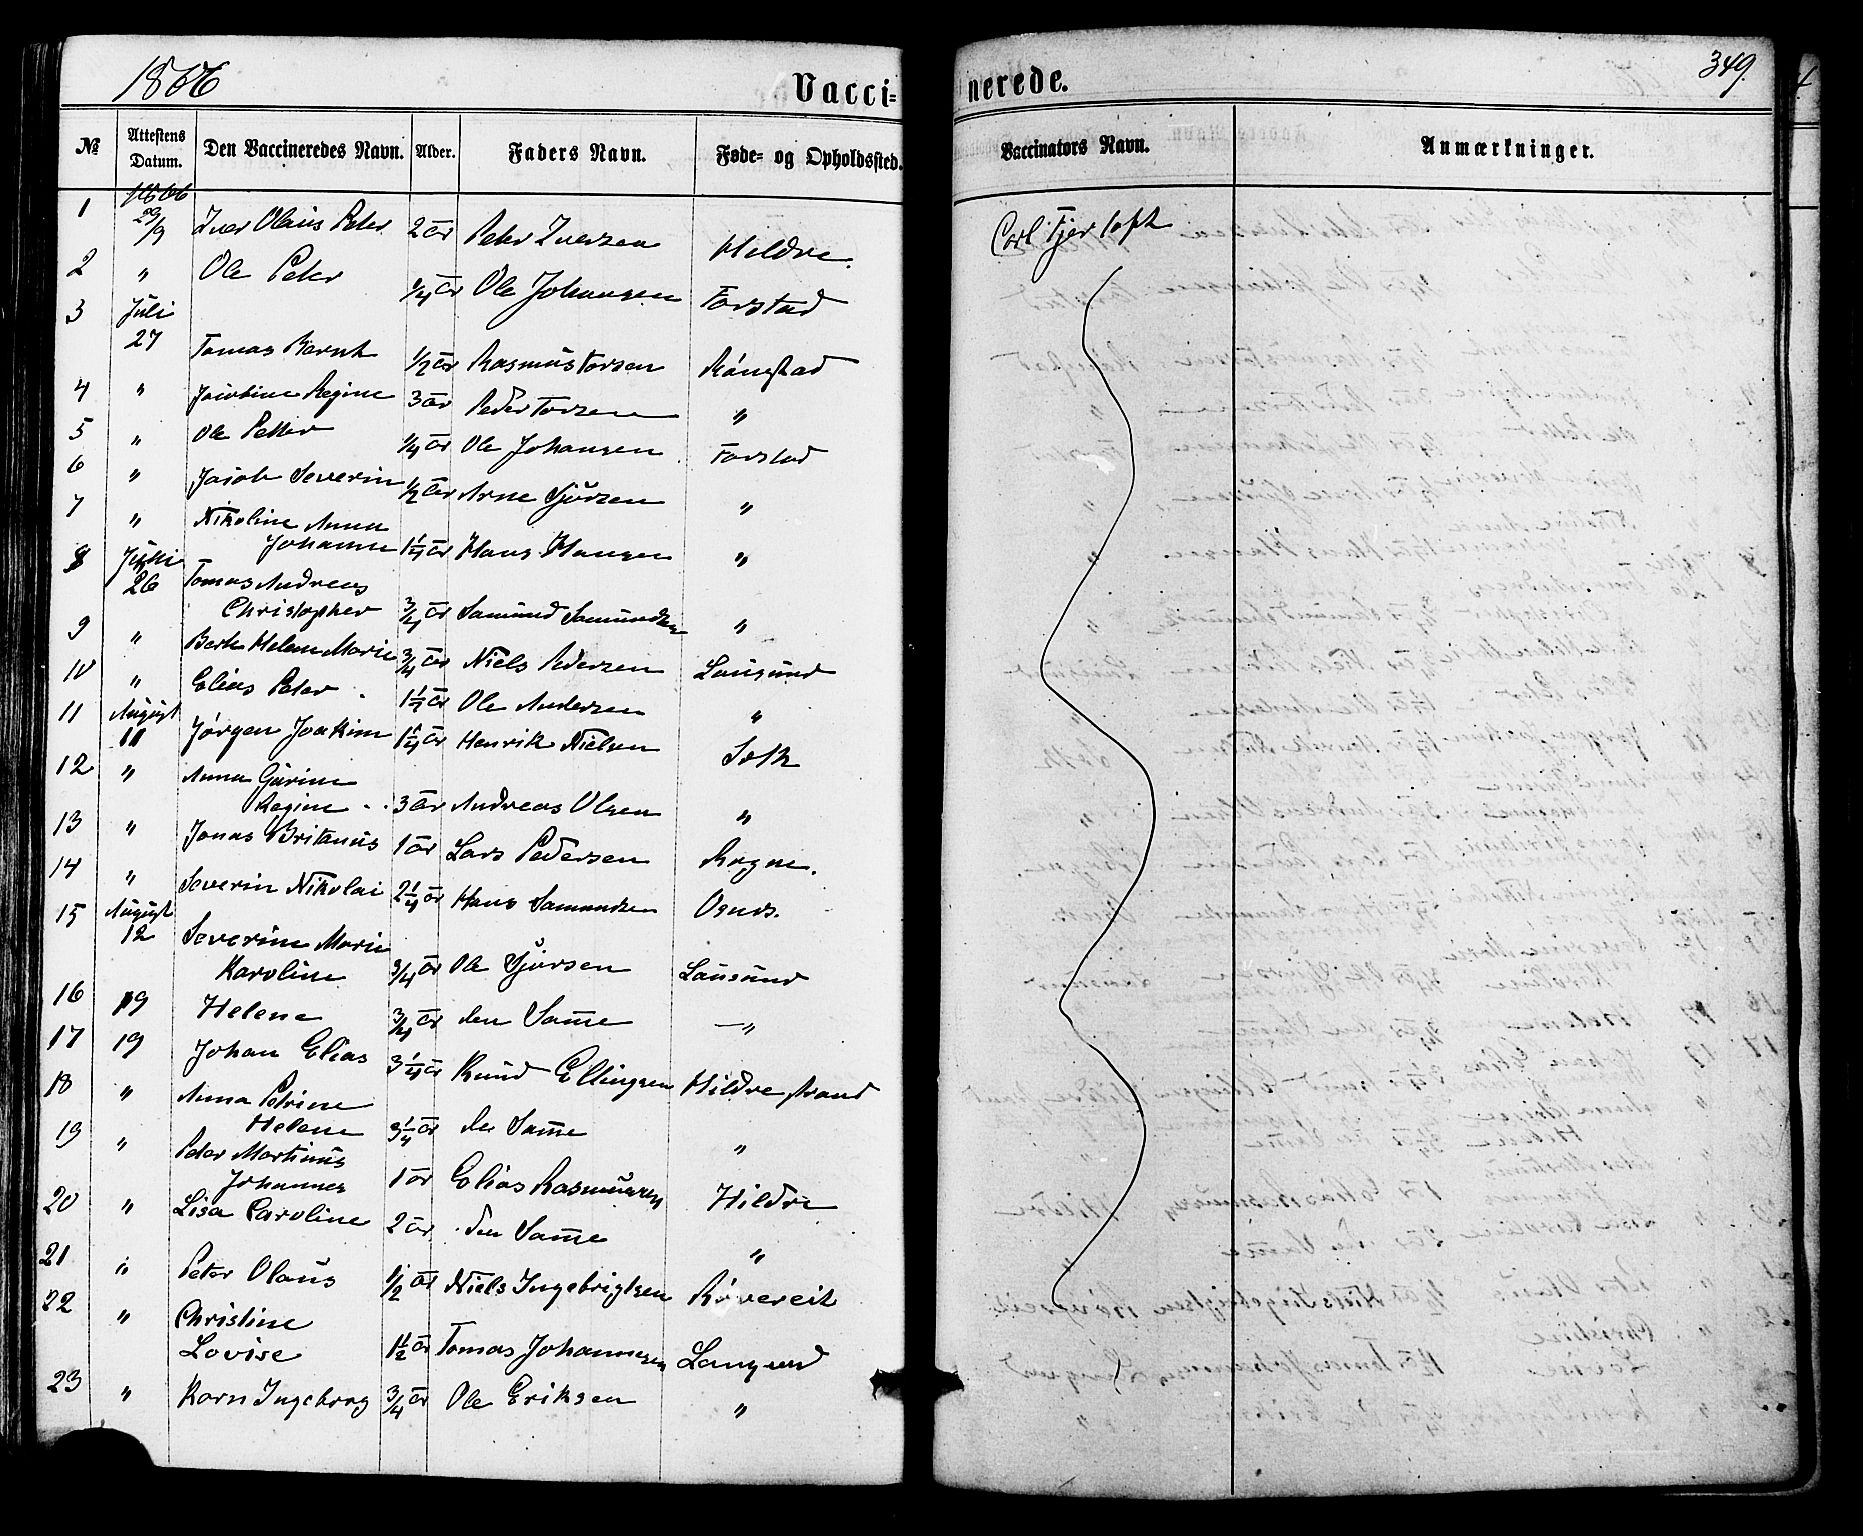 1866
Vacci-
nerede.
349.
№ Attestens Datum. Den Vaccineredes Navn. Alder. Faders Navn. Føde- og Opholdssted. Vaccinators Navn. Anmærkninger.
1866
1 29/9 Iver Olaus Peter 2 år Peter Iversen Hildre. Carl Fjertoft
2 " Ole Peter 1/4 år Ole Johansen Farstad
3 Juli 27 Tomas Bernt 1/2 år Rasmus Torsen Rønstad
4 " Jacobine Regine 3 år Peder Torsen "
5 " Ole Petter 1/4 år Ole Johansen Farstad
6 " Jacob Severin 1/2 år Arne Sjursen "
7 " Nikoline Anna
Johanne 1 1/4 år Hans Hansen "
8 26 Tomas Andreas
Christopher 3/4 år Samund Samundsen "
9 " Berte Helene Marie 3/4 år Niels Pedersen Lausund
10 " Elias Peter 1 1/2 år Ole Andersen "
11 August 11 Jørgen Joakim 1 1/4 år Henrik Nielsen
12 " Anna Gurine
Regine 3 år Andreas Olsen "
13 " Jonas Britanus 1 år Lars Pedersen Rogne.
14 " Severin Nikolai 2 1/4 år Hans Samundsen
15 August 12 Severine Marie
Karoline 3/4 år Ole Sjursen Lausund
16 19 Helene 3/4 år den Samme — "
17 19 Johan Elias 3 1/4 år Knud Ellingsen Hildrestrand
18 " Anna Petrine
Helene 3 1/4 år den Samme "
19 " Peter Martinus
Johannes 1 år Elias Rasmussen Hildre
20 " Lisa Caroline 2 år den Samme "
21 " Peter Olaus 1/2 år Niels Ingebrigtsen Røvereit
22 " Christine
Lovise 1 1/2 år Tomas Johannesen Langsund
23 " Karn Ingeborg 3/4 år Ole Eriksen "